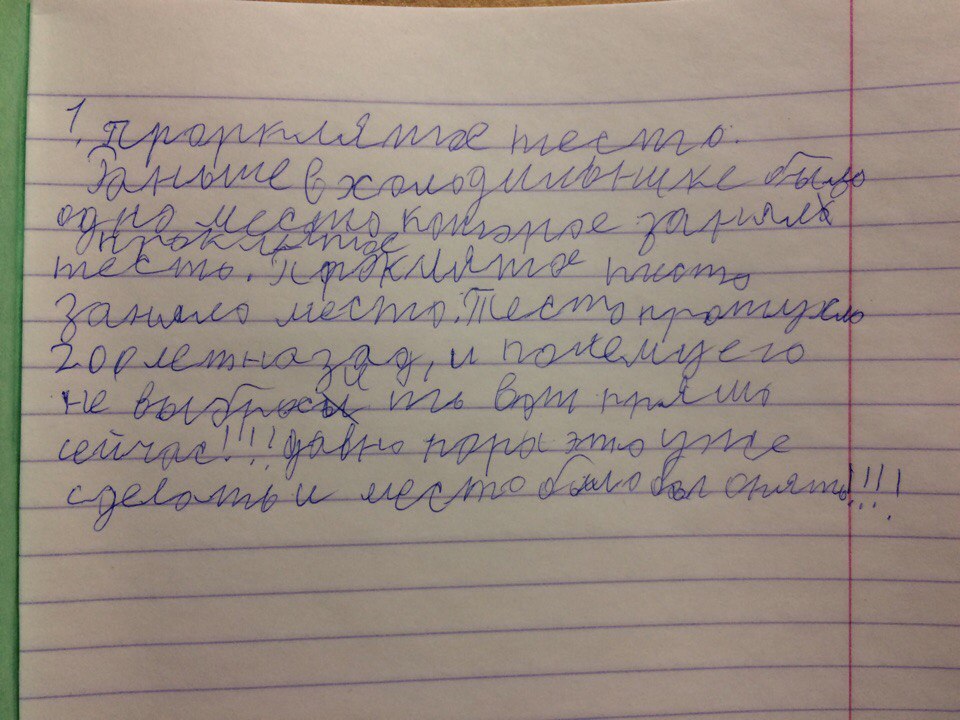 1. Проркляятое тесто.
Раньше в холодильнике было
одно место которое заняла
проклятое
тесто. Проклятое тесто
заняло место. Тесто протухло
200 лет назад, и почему его
не выбросить вот прямо
сейчас!!!? давно пора это уже
сделать и место было бы опять!!!!